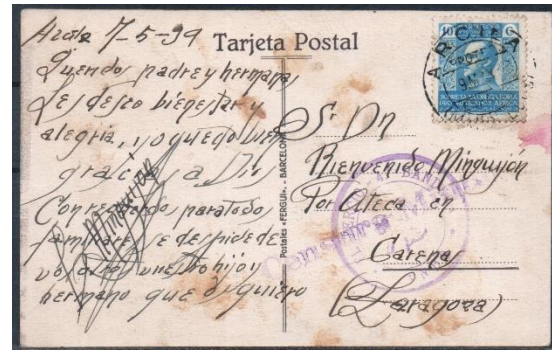 Arcila 7-5-39
Tarjeta Postal
Queridos padre y hermana,
Les deseo bienestar y
alegria, yo quedo bien
gracias a Dios
Con recuerdos para todo
familiares se despide de
vosotros vuestro hijo y
hermano que os quiere
Minguijon
Postales «FERGUI». - BARCELONA
Sr Dn
Bienvenido Minguijón
Por Ateca en
Carenas
(Zaragoza)
ARCILA
10 C